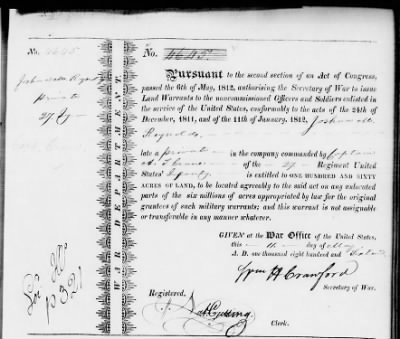 No. 4645
No. 4645.
Pursuant to the second section of an Act of Congress,
passed the 6th of May, 1812, authorising the Secretary of War to issue
Land Warrants to the noncommissioned Officers and Soldiers enlisted in
the service of the United States, conformably to the acts of the 24th of
December, 1811, and of the 11th of January, 1812,
Reynolds
late a private in the company commanded by Captain
of the 27 Regiment United
States' Infantry is entitled to ONE HUNDRED AND SIXTY
ACRES OF LAND, to be located agreeably to the said act on any unlocated
parts of the six millions of acres appropriated by law for the original
grantees of such military warrants; and this warrant is not assignable
or transferable in any manner whatever.
GIVEN at the War Office of the United States,
this 11 day of May
A. D. one thousand eight hundred and
Wm H Crawford
Secretary of War.
Registered,
Clerk.
Private
27
WAR DEPARTMENT.
p 321